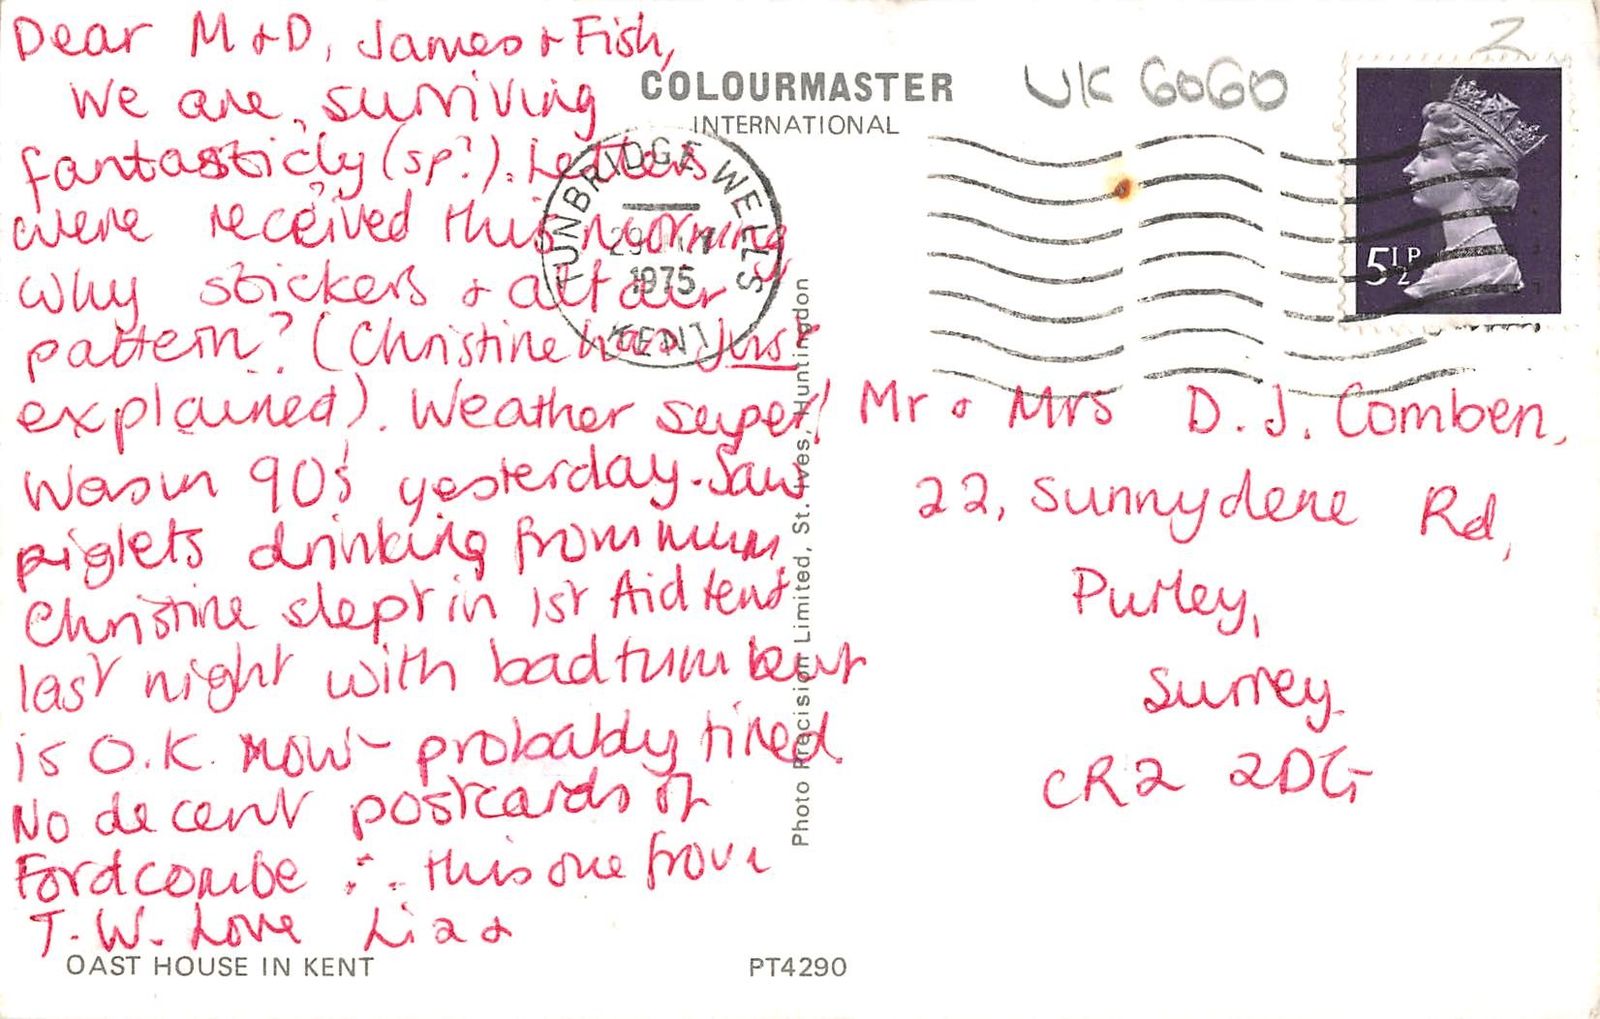 Dear M & D, James & Fish,
We are surviving
fantasticly (sp?). Letters
were received this morning
Why stickers & alt
pattern? (Christine has just
explained). Weather super!
Was in 90s yesterday. Saw
piglets drinking from mum,
Christine slept in 1st Aid tent
last night with bad tum but
is O.K. now - probably tired.
No decent postcards of
Fordcombe ∴ this one from
T.W. Love Liz &
OAST HOUSE IN KENT
COLOURMASTER
INTERNATIONAL
TUNBRIDGE WELLS
29
1975
KENT
Photo Precision Limited, St. Ives, Huntingdon
PT4290
UK 6060
2
5½P
Mr & Mrs D. J. Comben,
22, Sunnydene Rd,
Purley,
Surrey
CR2 2DG